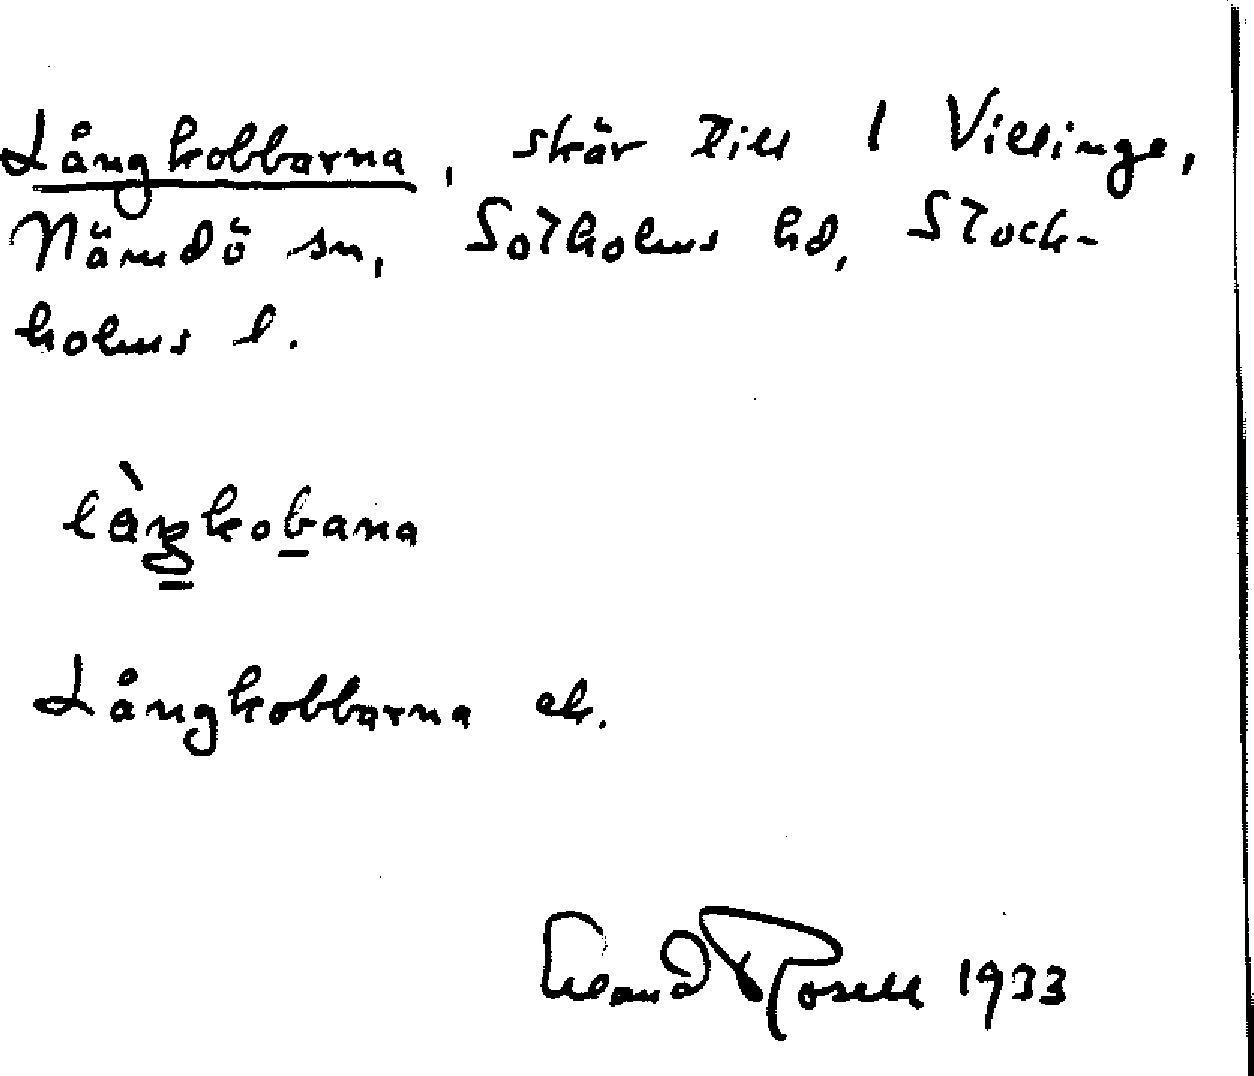 Långkobbarna, skär till 1 Villinge,
Nämdö sn, Sotholms hd, Stock-
holms l.
làŋkobana
Långkobbarna ek.
Erland Rosell 1933